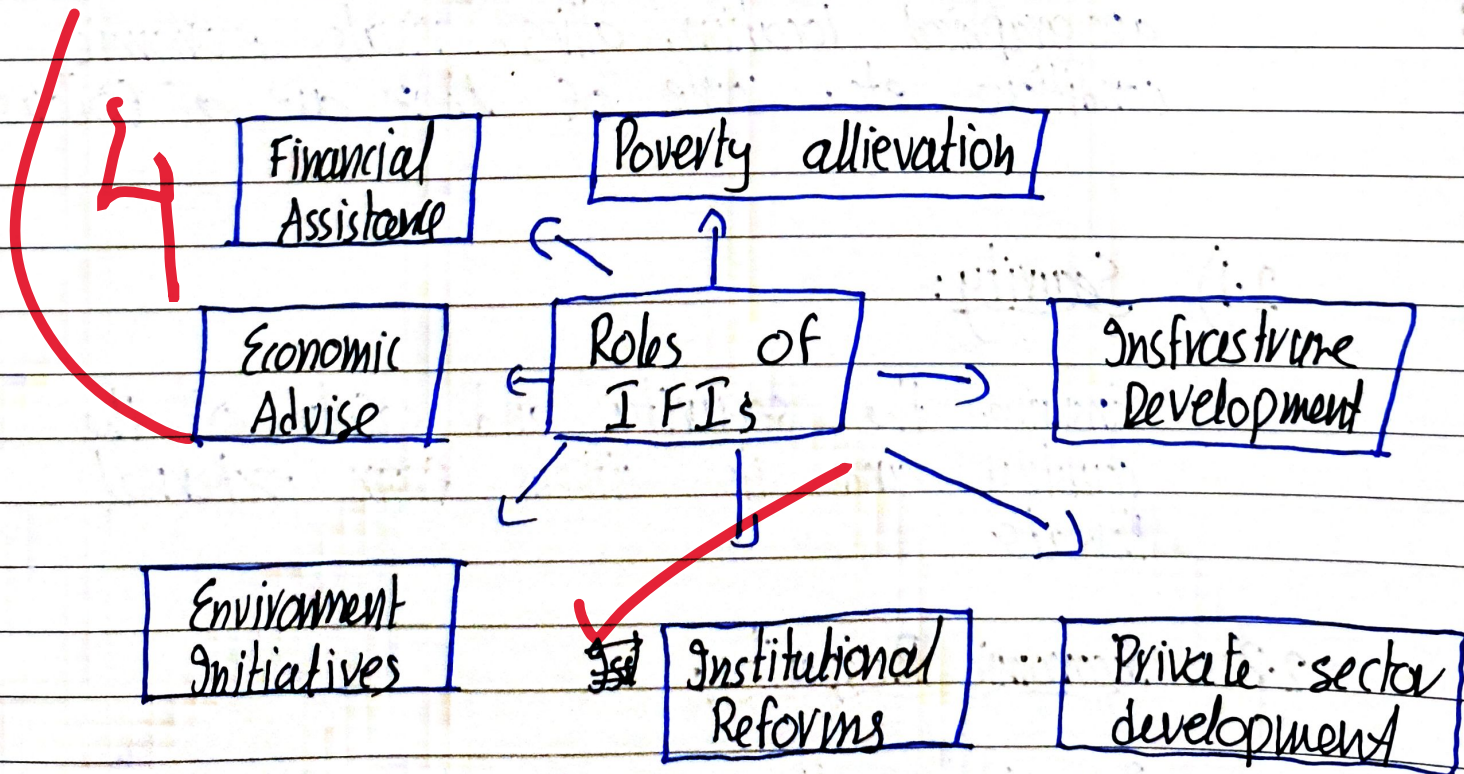 4
Financial
Assistance
Poverty allievation
Economic
Advise
Roles of
IFIs
Insfrastrure
Development
Environment
Initiatives
Institutional
Reforms
Private sector
development